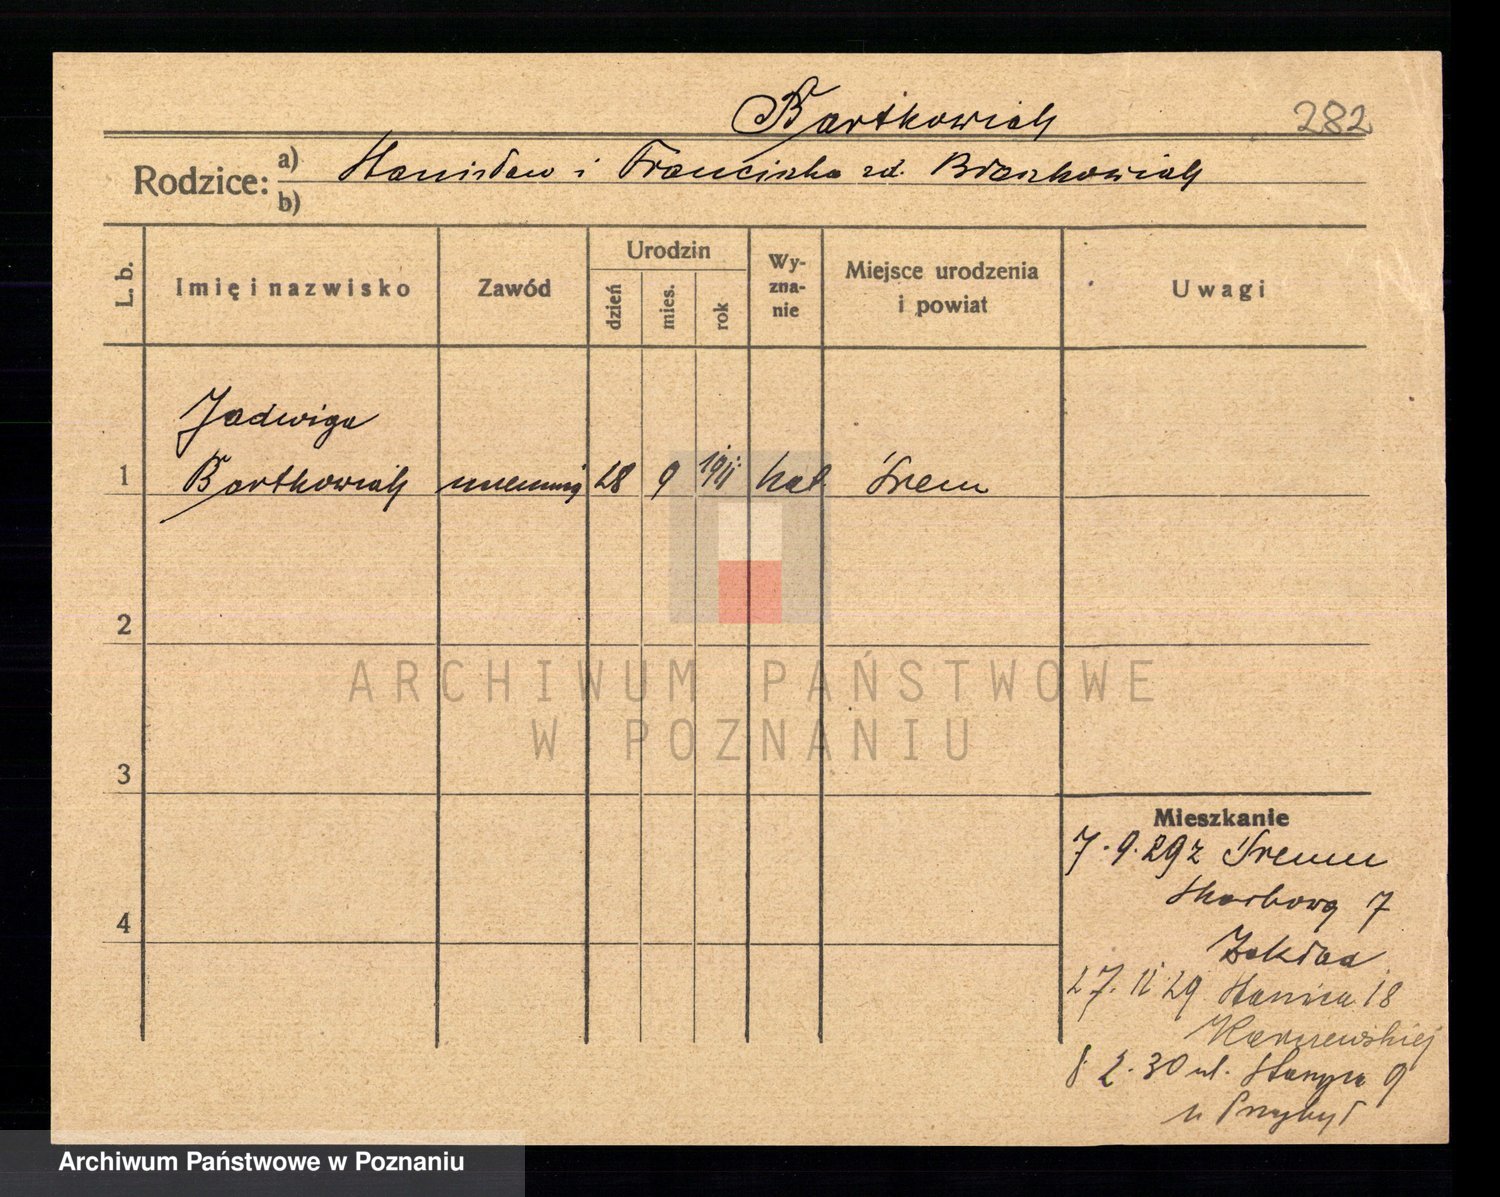 Bartkowiak 282
Rodzice: a) Stanisław i Franciszka zd. Błaszkowiak
b)
L. b. Imię i nazwisko Zawód Urodzin dzień mies. rok Wy-zna-nie Miejsce urodzenia i powiat Uwagi
Jadwiga
1 Bartkowiak 28 9 1911 kat Śrem
2
3
4
Mieszkanie
7.9.29 z Śremu
Skarbowa 7
27.11.29 18
8.2.30 ul. 9
u Przybył
ARCHIWUM PAŃSTWOWE
W POZNANIU
Archiwum Państwowe w Poznaniu